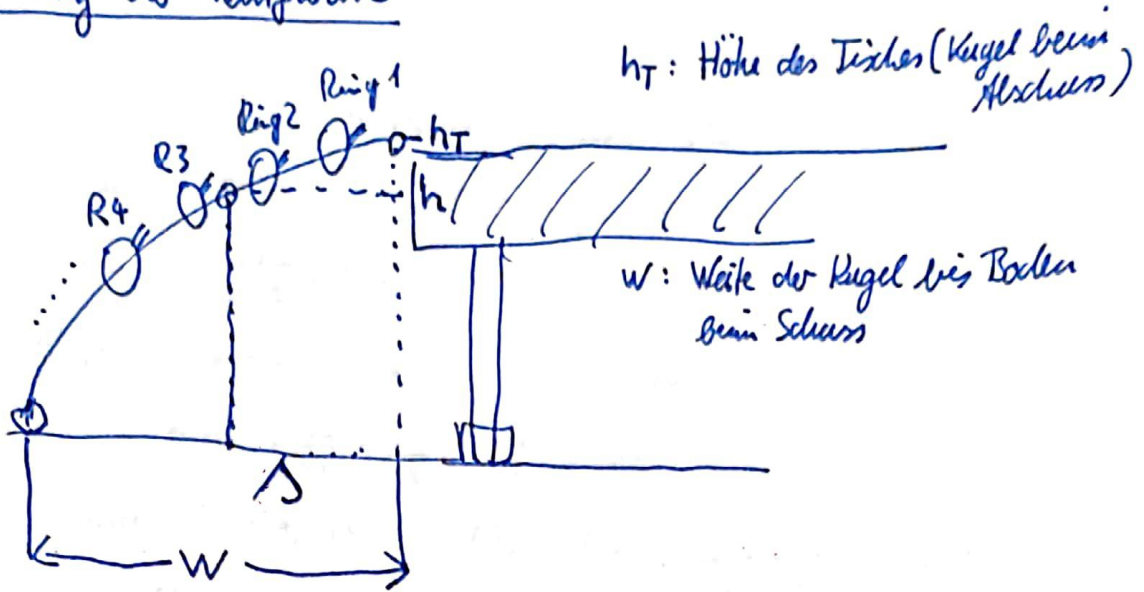 hT : Höhe des Tisches (Kugel beim
Abschuss)
Ring 1
Ring 2
hT
R3
h
R4
W : Weite der Kugel bis Boden
beim Schuss
s
W